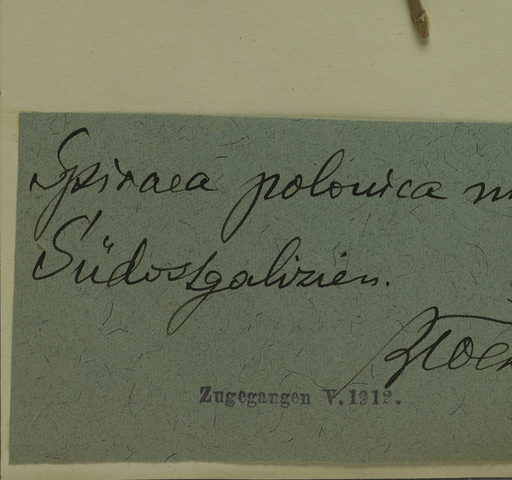 Spiraea polonica
Südostgalizien.
Zugegangen V. 1912.